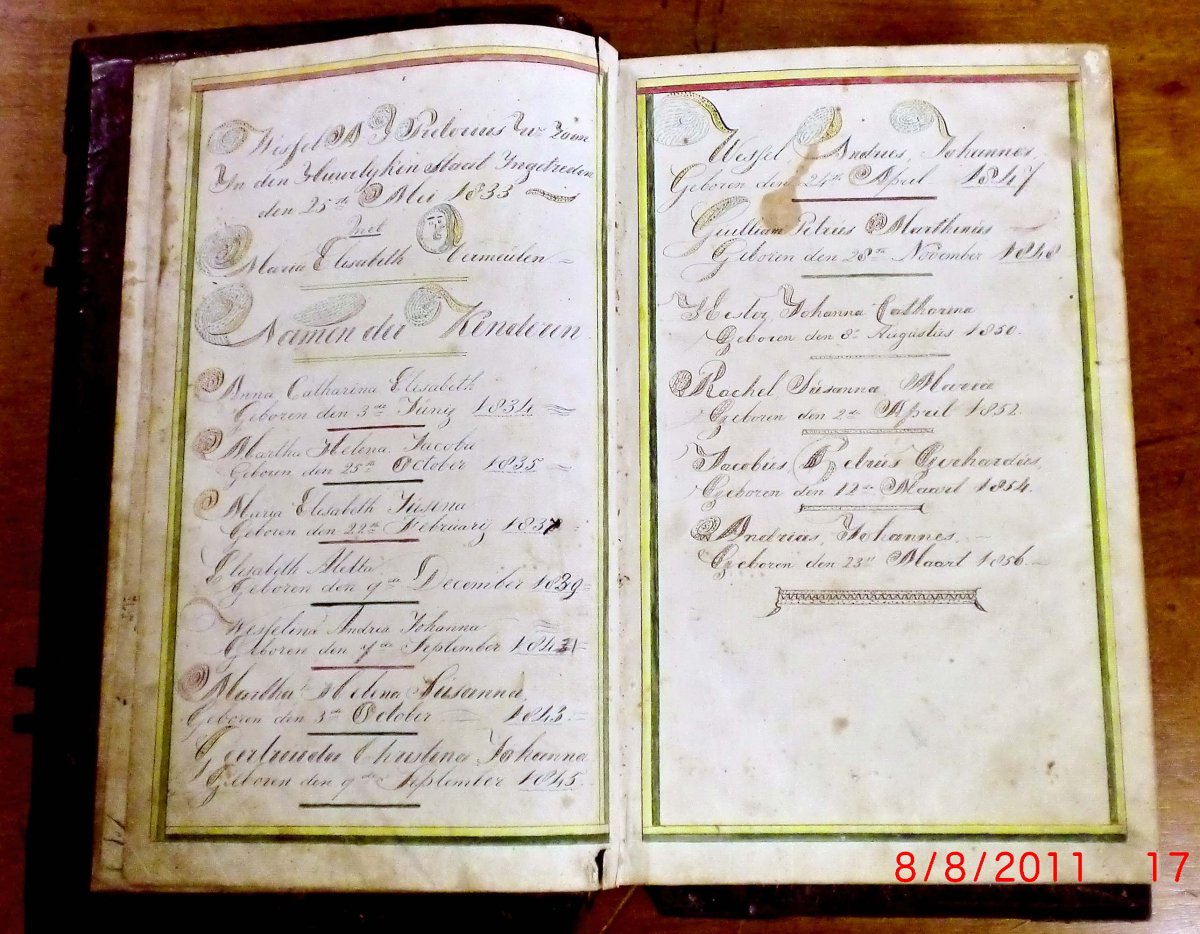 Wessel A J Pretorius Wz Zoon
In den Huwelyken Staat Ingetreden
den 25ste Mei 1833
Met
Maria Elisabeth Vermeulen
Namen der Kenderen
Anna Catharina Elisabeth
Geboren den 3de Junij 1834
Martha Helena Jacoba
Geboren den 25ste October 1835
Maria Elisabeth Susana
Geboren den 22ste Februarij 1837
Elisabeth Aletta
Geboren den 9de December 1839
Wesselina Andria Johanna
Geboren den 7de September 1841
Martha Helena Susanna
Geboren den 3de October 1843
Geertruida Christina Johanna
Geboren den 9de September 1845
Wessel, Andries, Johannes,
Geboren den 24ste April 1847
Guilliam Petrus Marthinus
Geboren den 28ste November 1848
Hester Johanna Catharina
Geboren den 8ste Augustus 1850.
Rachel Susanna Maria
Geboren den 2de April 1852.
Jacobus Petrus Gerhardus,
Geboren den 12de Maart 1854.
Andrias, Johannes,
Geboren den 23ste Maart 1856.
8/8/2011 17